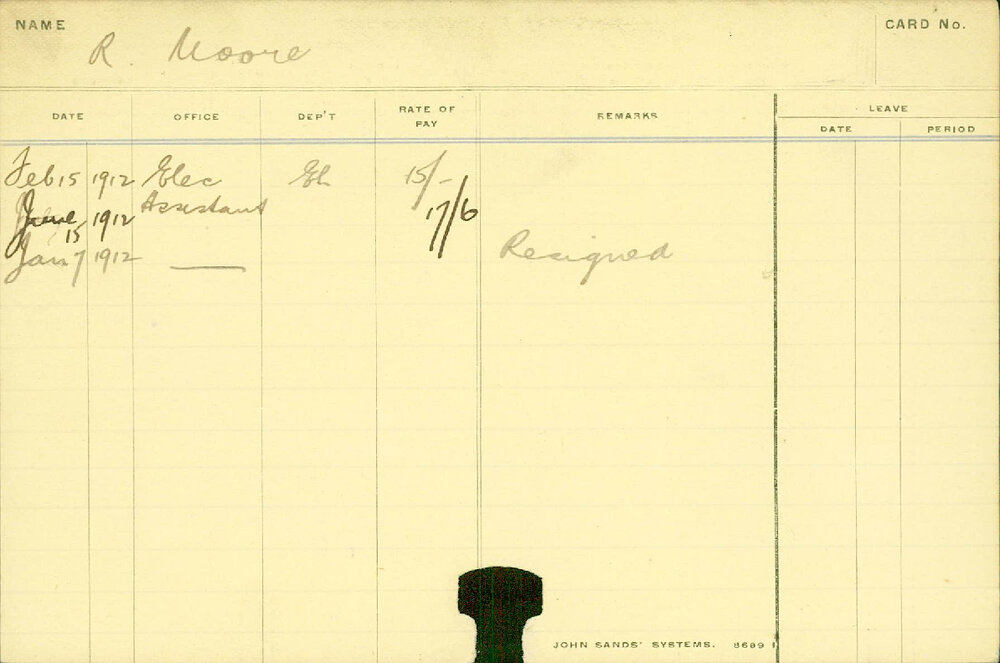 NAME
R. Moore
CARD No.
DATE OFFICE DEP'T RATE OF PAY REMARKS LEAVE
DATE PERIOD
Feb 15 1912 Elec 15/-
June 15 1912 Assistant 17/6
Jan 7 1912 — Resigned
JOHN SANDS' SYSTEMS. 8699